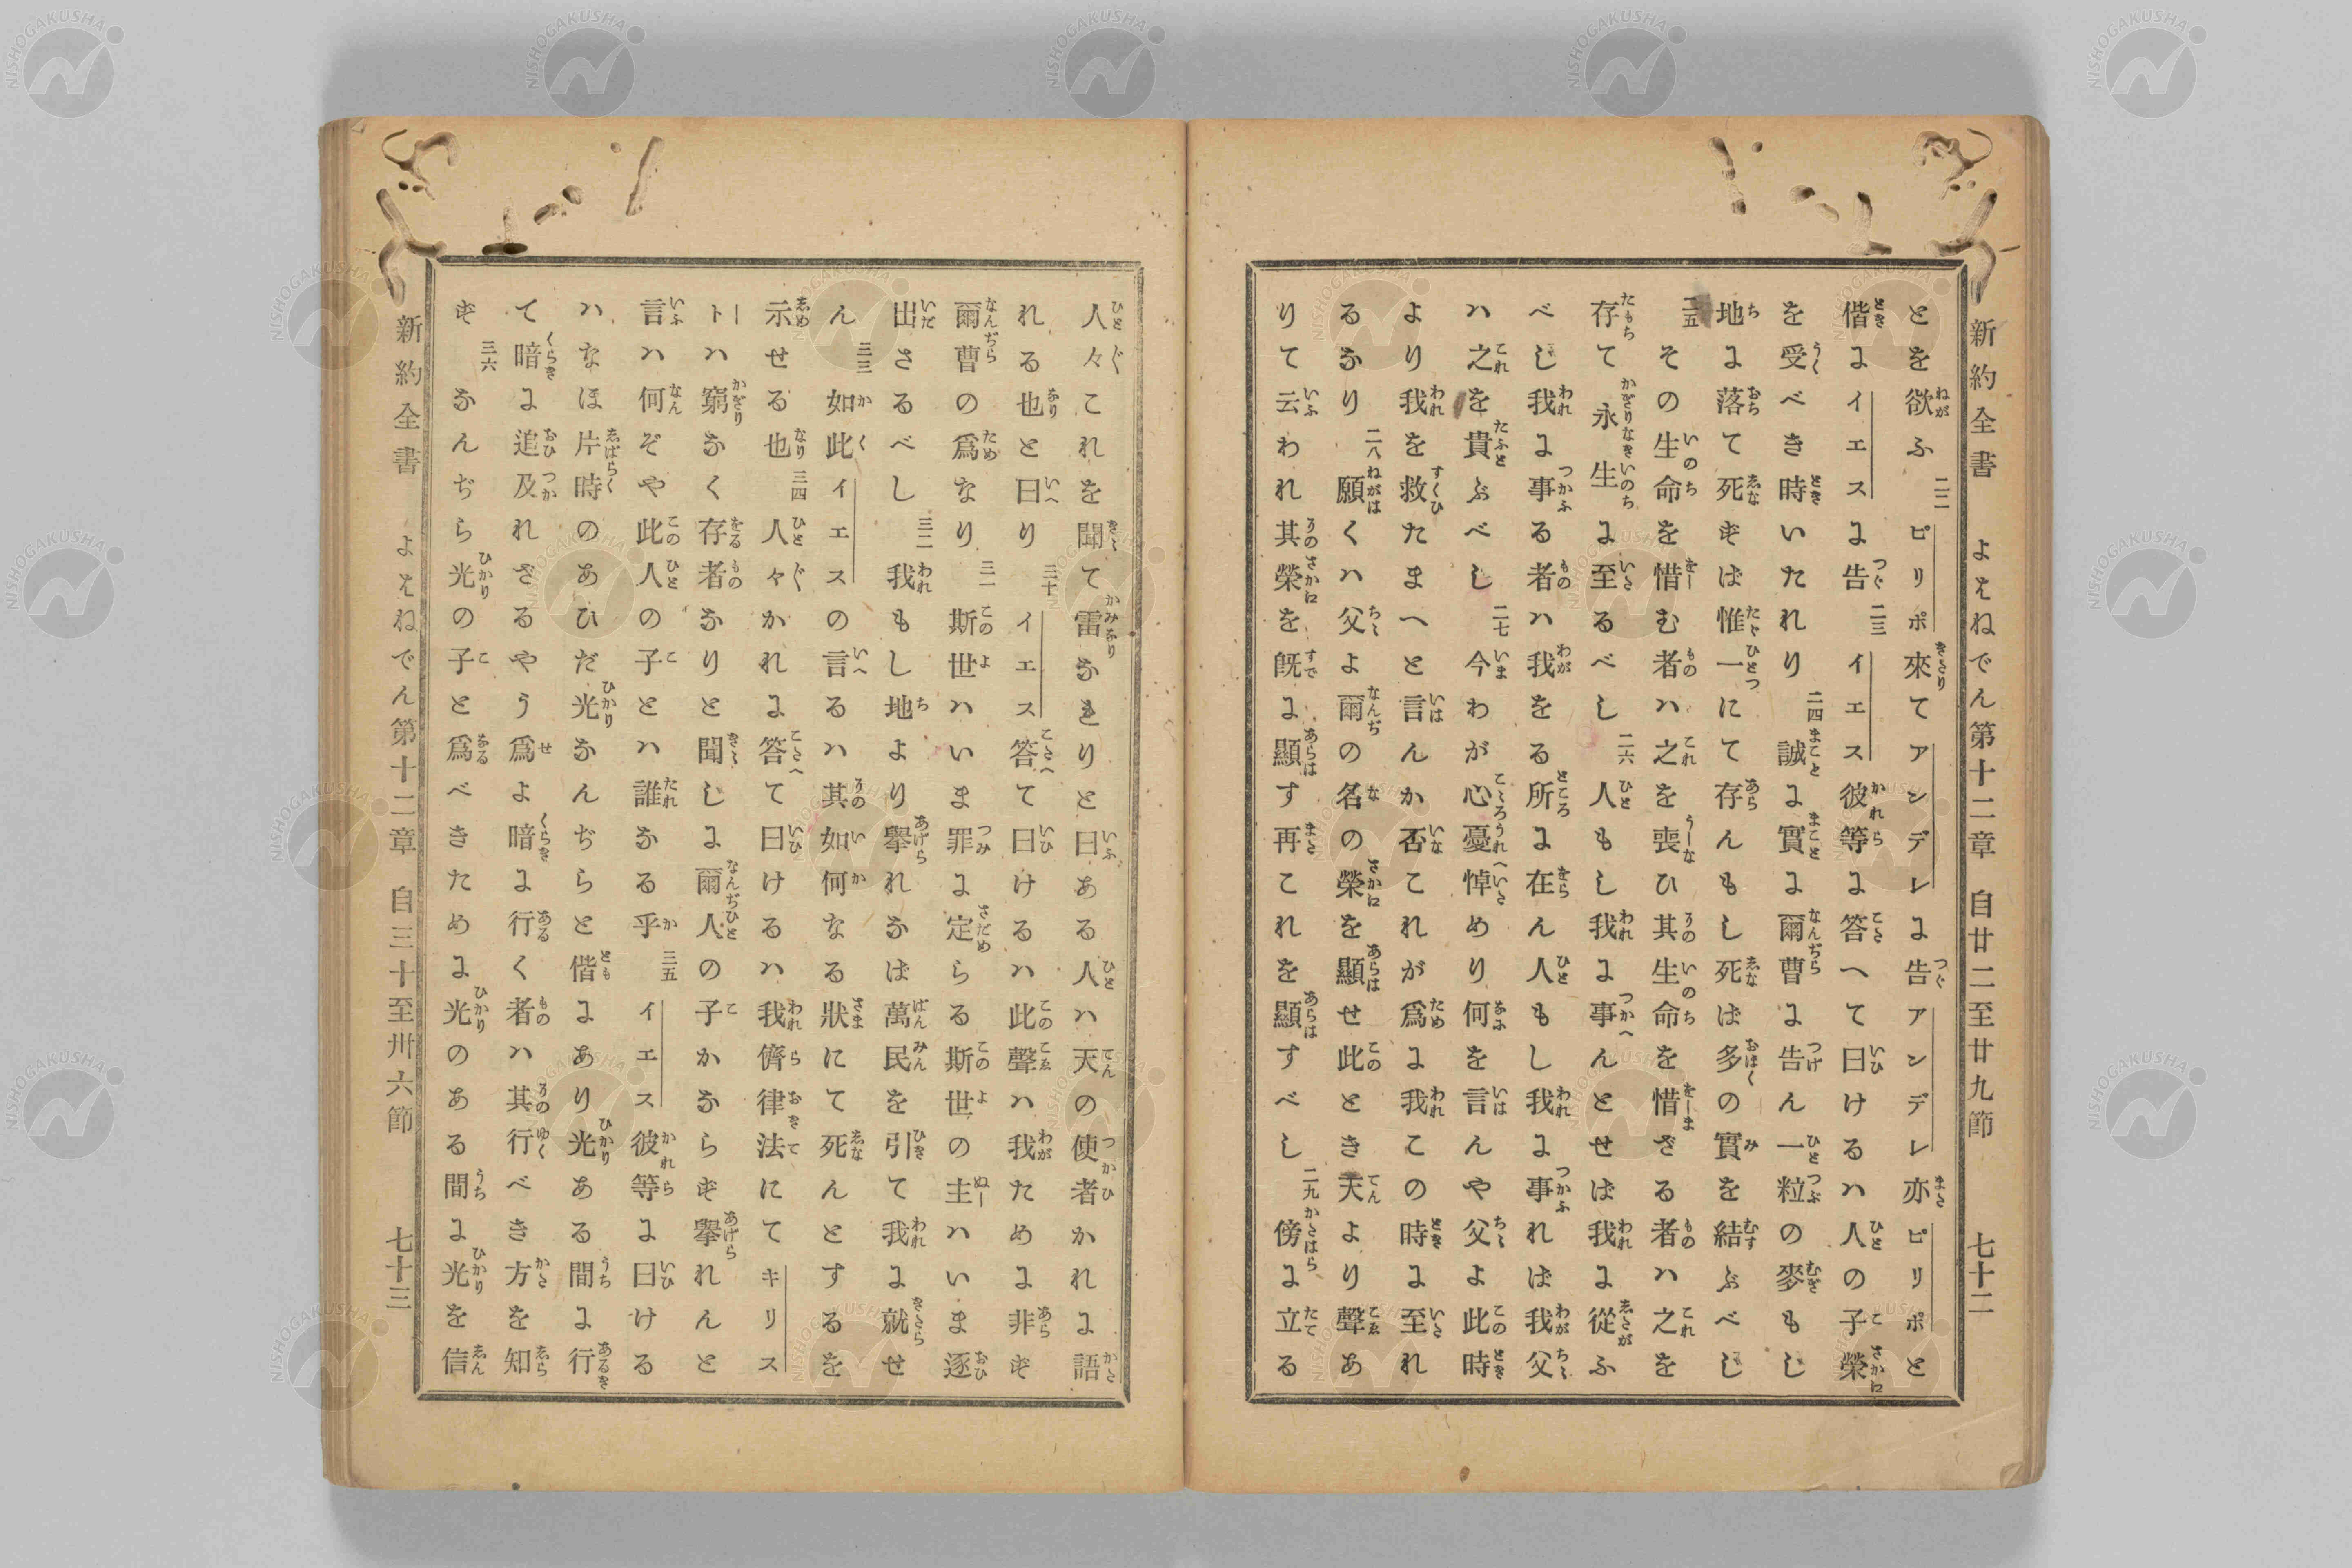 新約全書　よはねでん第十二章　自廿二至廿九節　七十二
とを欲ふ 二二 ピリポ來てアンデレに告アンデレ亦ピリポと
偕にイエスに告 二三 イエス彼等に答へて曰けるハ人の子榮
を受べき時いたれり 二四 誠に實に爾曹に告ん一粒の麥もし
地に落て死ずば惟一にて存んもし死ば多の實を結ぶべし
二五 その生命を惜む者ハ之を喪ひ其生命を惜ざる者ハ之を
存て永生に至るべし 二六 人もし我に事んとせば我に從ふ
べし我に事る者ハ我をる所に在ん人もし我に事れば我父
ハ之を貴ぶべし 二七 今わが心憂悼めり何を言んや父よ此時
より我を救たまへと言んか否これが爲に我この時に至れ
るなり 二八 願くハ父よ爾の名の榮を顯せ此とき天より聲あ
りて云われ其榮を既に顯す再これを顯すべし 二九 傍に立る
人々これを聞て雷なきりと曰ある人ハ天の使者かれに語
れる也と曰り 三十 イエス答て曰けるハ此聲ハ我ために非ず
爾曹の爲なり 三一 斯世ハいま罪に定らる斯世の主ハいま逐
出さるべし 三二 我もし地より擧れなば萬民を引て我に就せ
ん 三三 如此イエスの言るハ其如何なる狀にて死んとするを
示せる也 三四 人々かれに答て曰けるハ我儕律法にてキリス
トハ窮なく存者なりと聞しに爾人の子かならず擧れんと
言ハ何ぞや此人の子とハ誰なる乎 三五 イエス彼等に曰ける
ハなほ片時のあひだ光なんぢらと偕にあり光ある間に行
て暗に追及れざるやう爲よ暗に行く者ハ其行べき方を知
ず 三六 なんぢら光の子と爲べきために光のある間に光を信
新約全書　よはねでん第十二章　自三十至卅六節　七十三